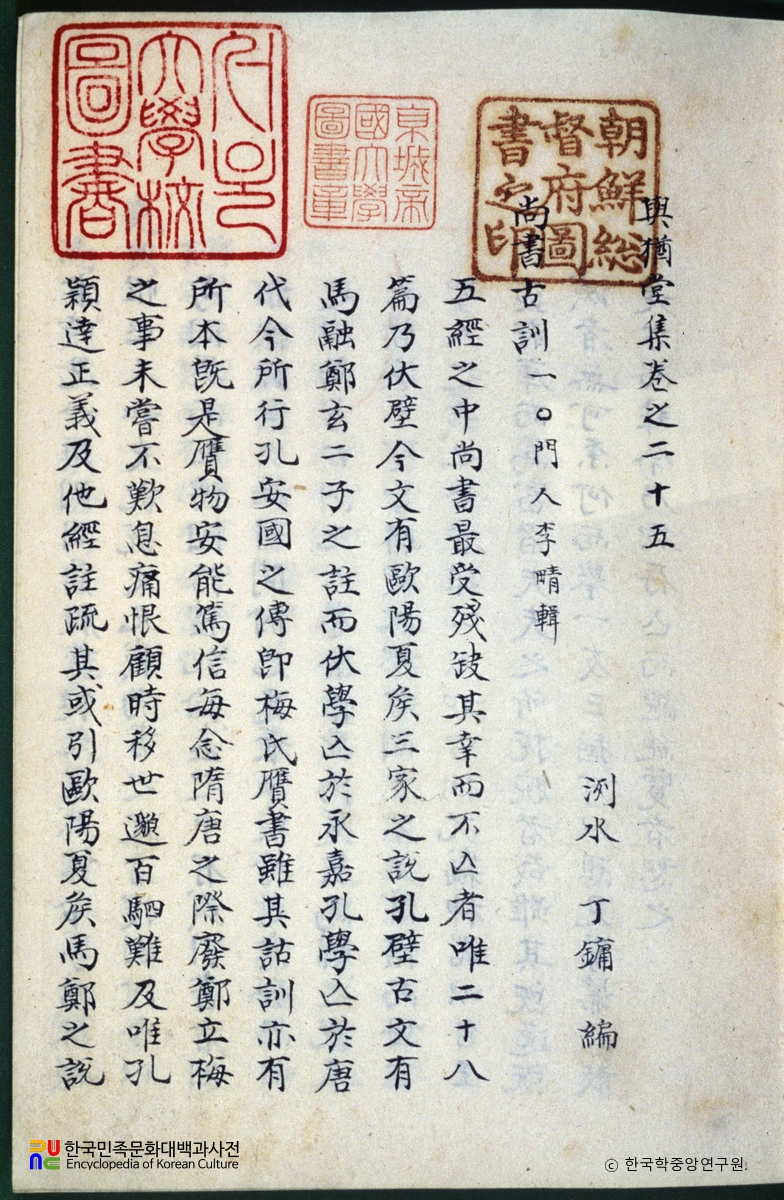 與猶堂集卷之二十五
洌水 丁鏞 編
尚書古訓一○門人李𤲟輯
五經之中尚書最受殘缺其幸而不亾者唯二十八
篇乃伏壁今文有歐陽夏矦三家之說孔壁古文有
馬融鄭玄二子之註而伏學亾於永嘉孔學亾於唐
代今所行孔安國之傳卽梅氏贋書雖其詁訓亦有
所本旣是贋物安能篤信每念隋唐之際廢鄭立梅
之事未嘗不歎息痛恨顧時移世邈百駟難及唯孔
穎達正義及他經註疏其或引歐陽夏矦馬鄭之說
朝鮮総
督府圖
書之印
京城帝
國大學
圖書章
서울
大學校
圖書
한국민족문화대백과사전
Encyclopedia of Korean Culture
ⓒ 한국학중앙연구원